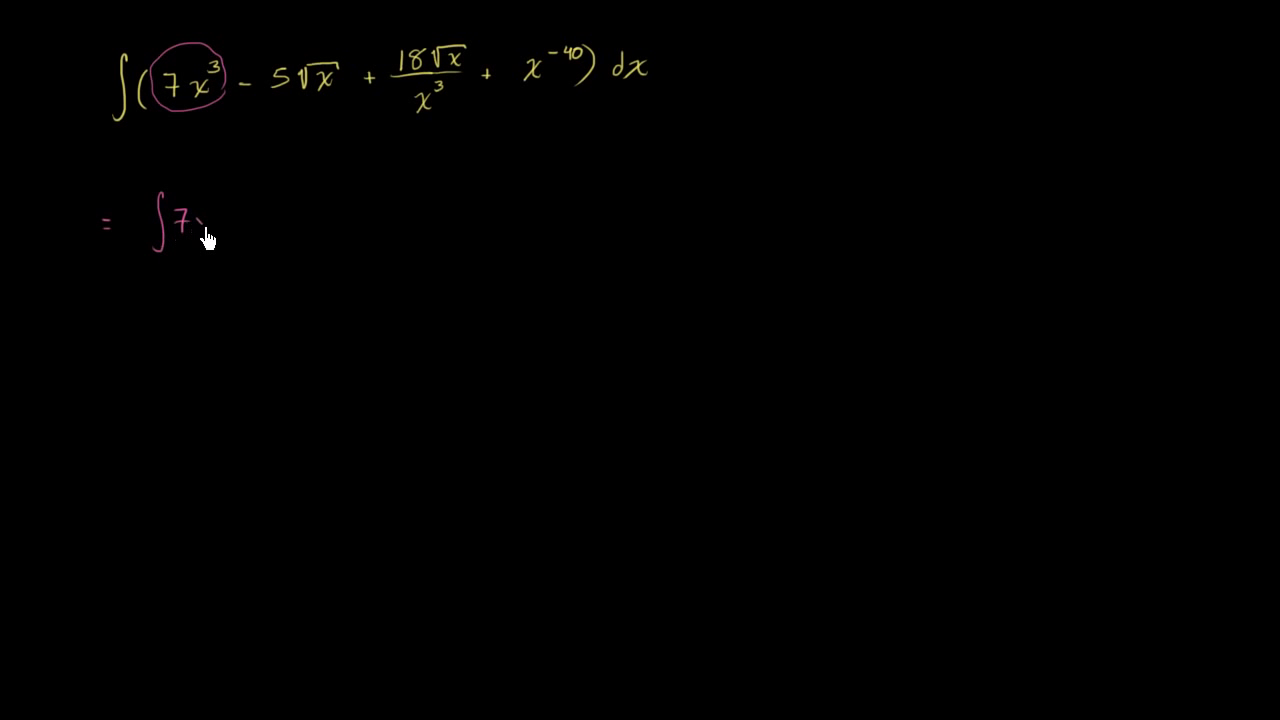 ∫(7x³ - 5√x + 18√x/x³ + x⁻⁴⁰) dx
= ∫7